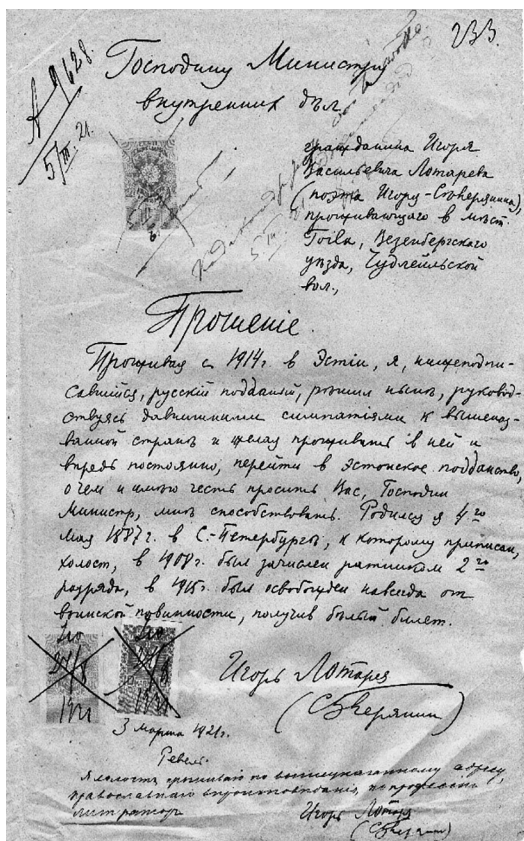 233.
А 9628.
5/III. 21.
Господину Министру
внутренних дѣл
гражданина Игоря
Васильевича Лотарева
(поэта Игоря-Сѣверянина),
проживающаго в мѣст.
Тойла, Везенбергскаго
уѣзда, Чудлейльской
вол.,
Прошеніе.
Проживая с 1914г. в Эстіи, я, нижеподпи-
савшійся, русскій подданный, рѣшил нынѣ, руковод-
ствуясь давнишними симпатіями к вышеназ-
ванной странѣ и желая проживать в ней и
впредь постоянно, перейти в Эстонское подданство,
о чем и имѣю честь просить Вас, Господин
Министр, мнѣ способствовать. Родился я 4го
мая 1887г. в С.-Петербургѣ, к которому приписан,
холост, в 1908г. был зачислен ратником 2го
разряда, в 1915г. был освобожден навсегда от
воинской повинности, получив бѣлый билет.
Игорь Лотарев
(Сѣверянин)
3 марта 1921г.
Ревель.
проживаю по вышеуказанному адресу,
православнаго вѣроисповѣданія, по профессіи
литератор.
Игорь Лотарев
(Сѣверянин)